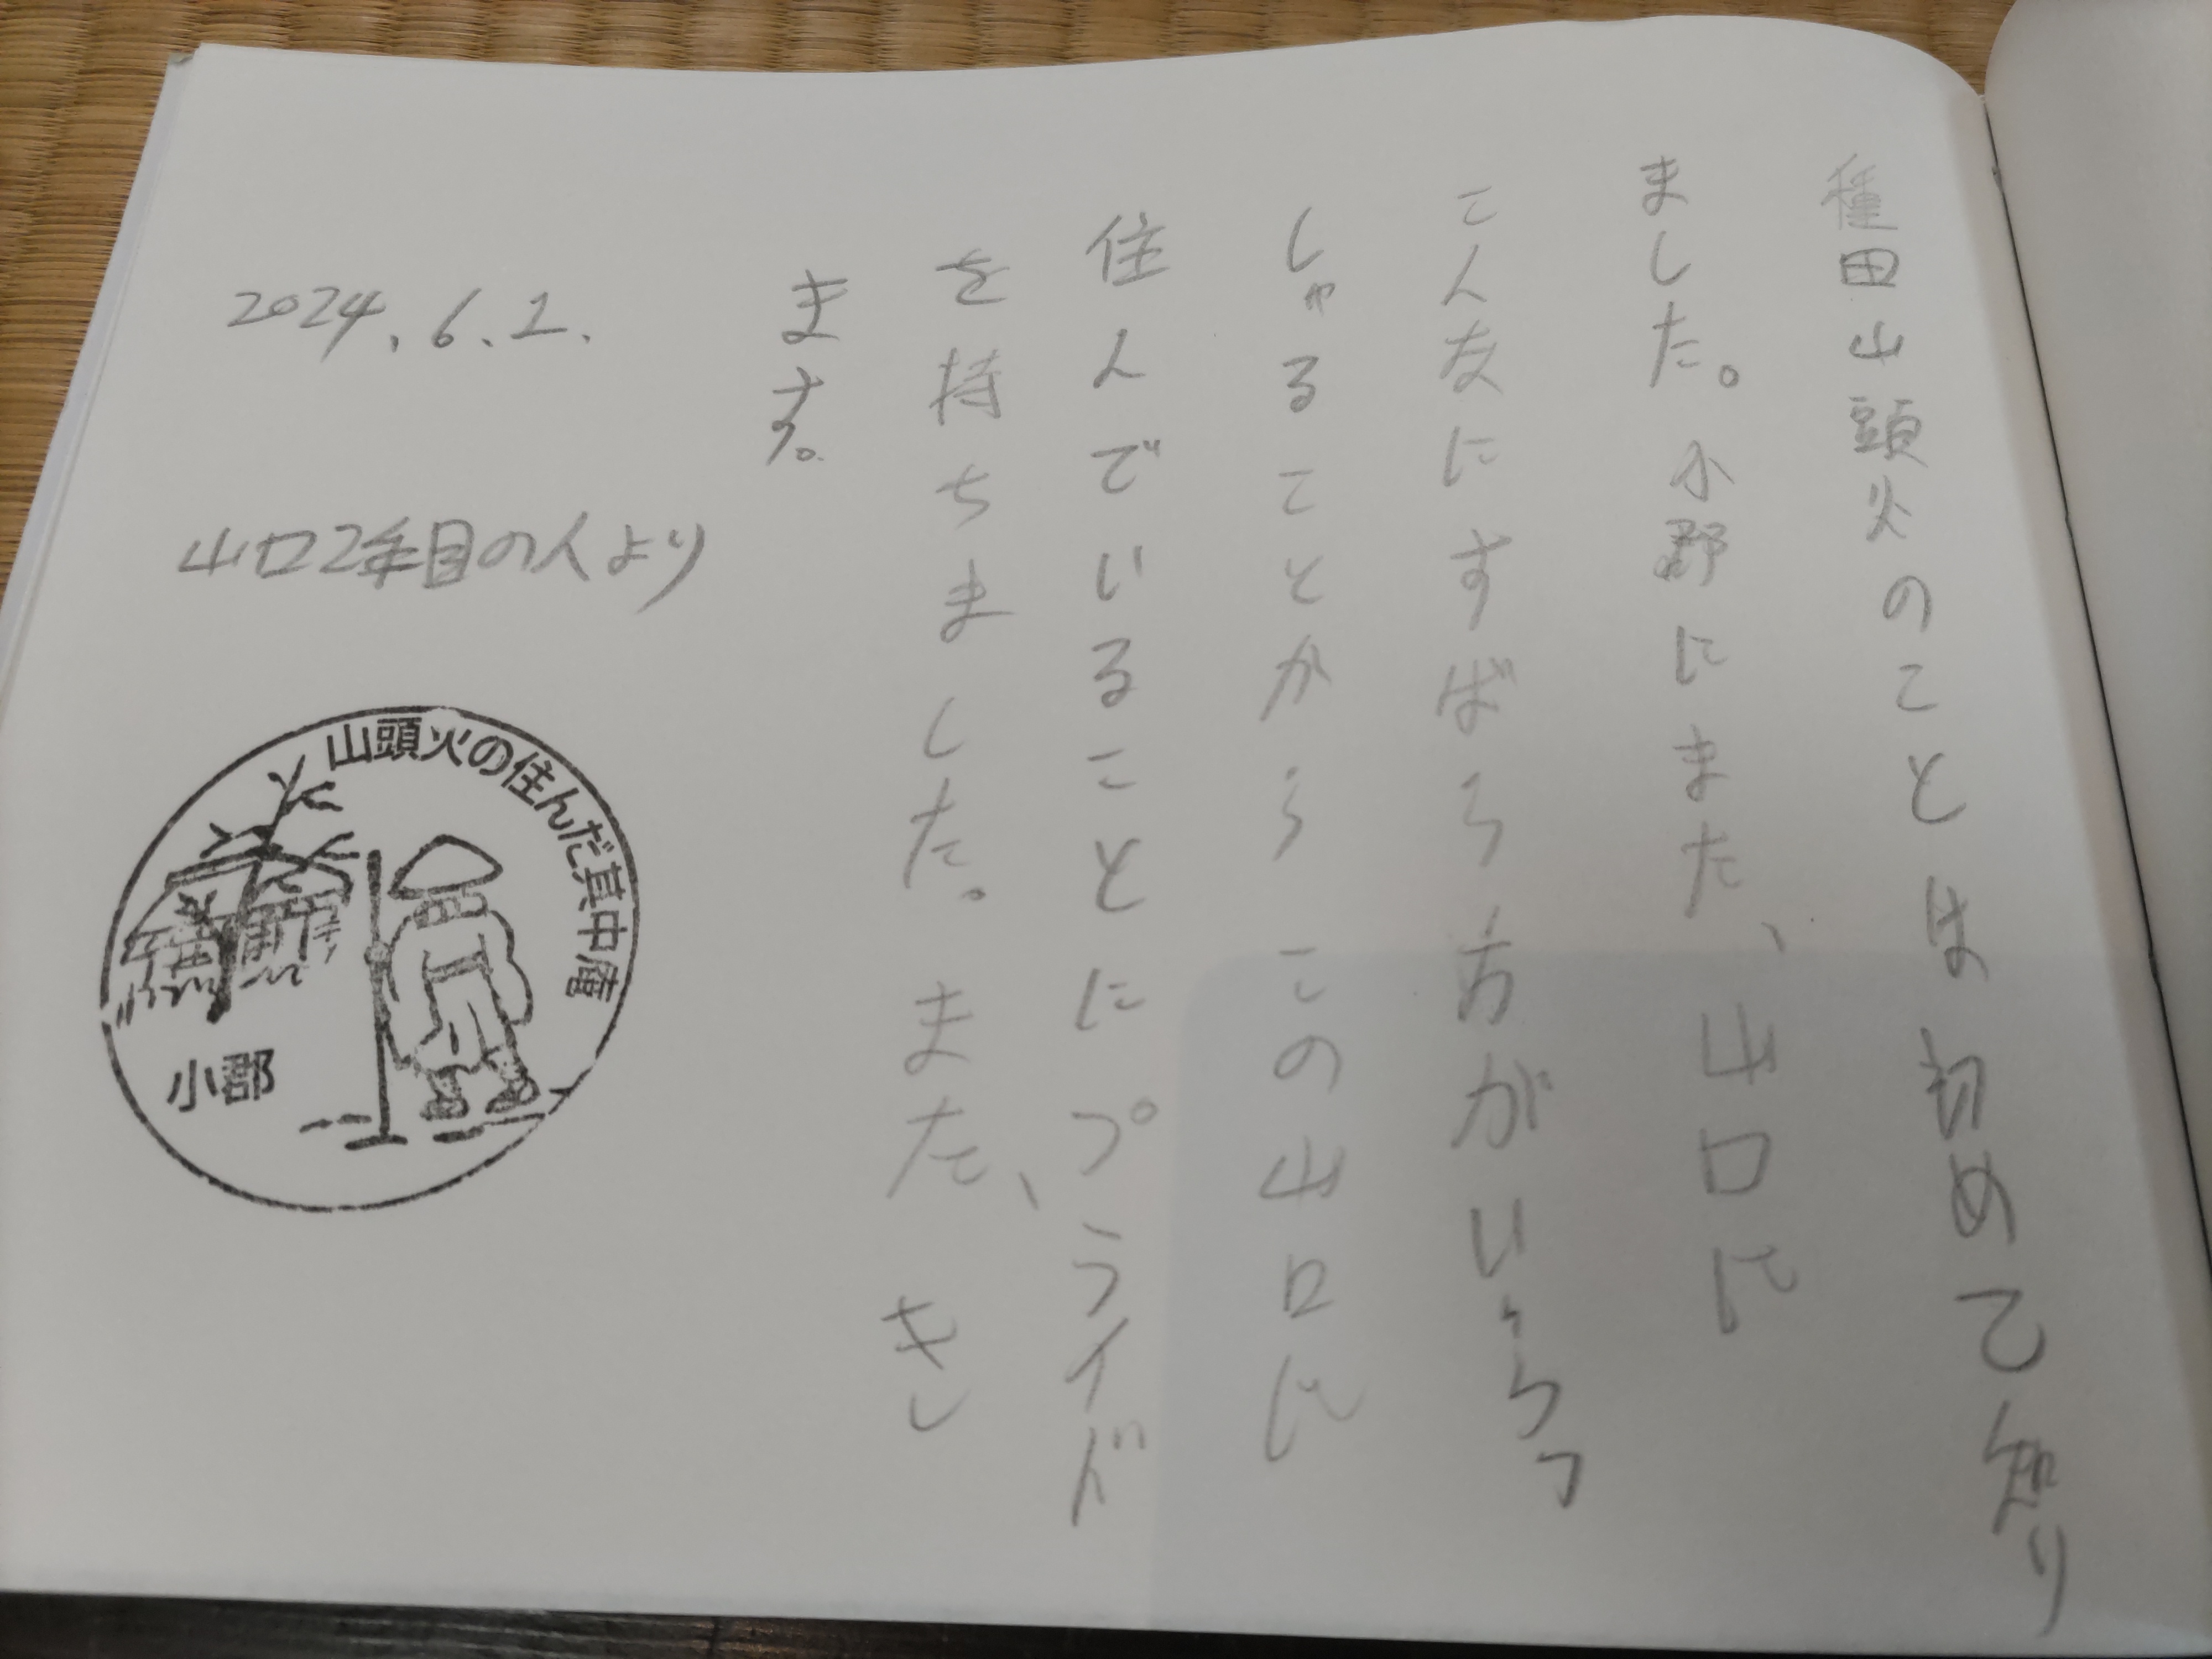 種田山頭火のことは初めて知り
ました。小郡にまた、山口に
こんなにすばらう方がいらっ
しゃることからこの山口に
住んでいることにプライド
を持ちました。また、きし
ます。
2024.6.1.
山口2年目の人より
山頭火の住んだ其中庵
小郡